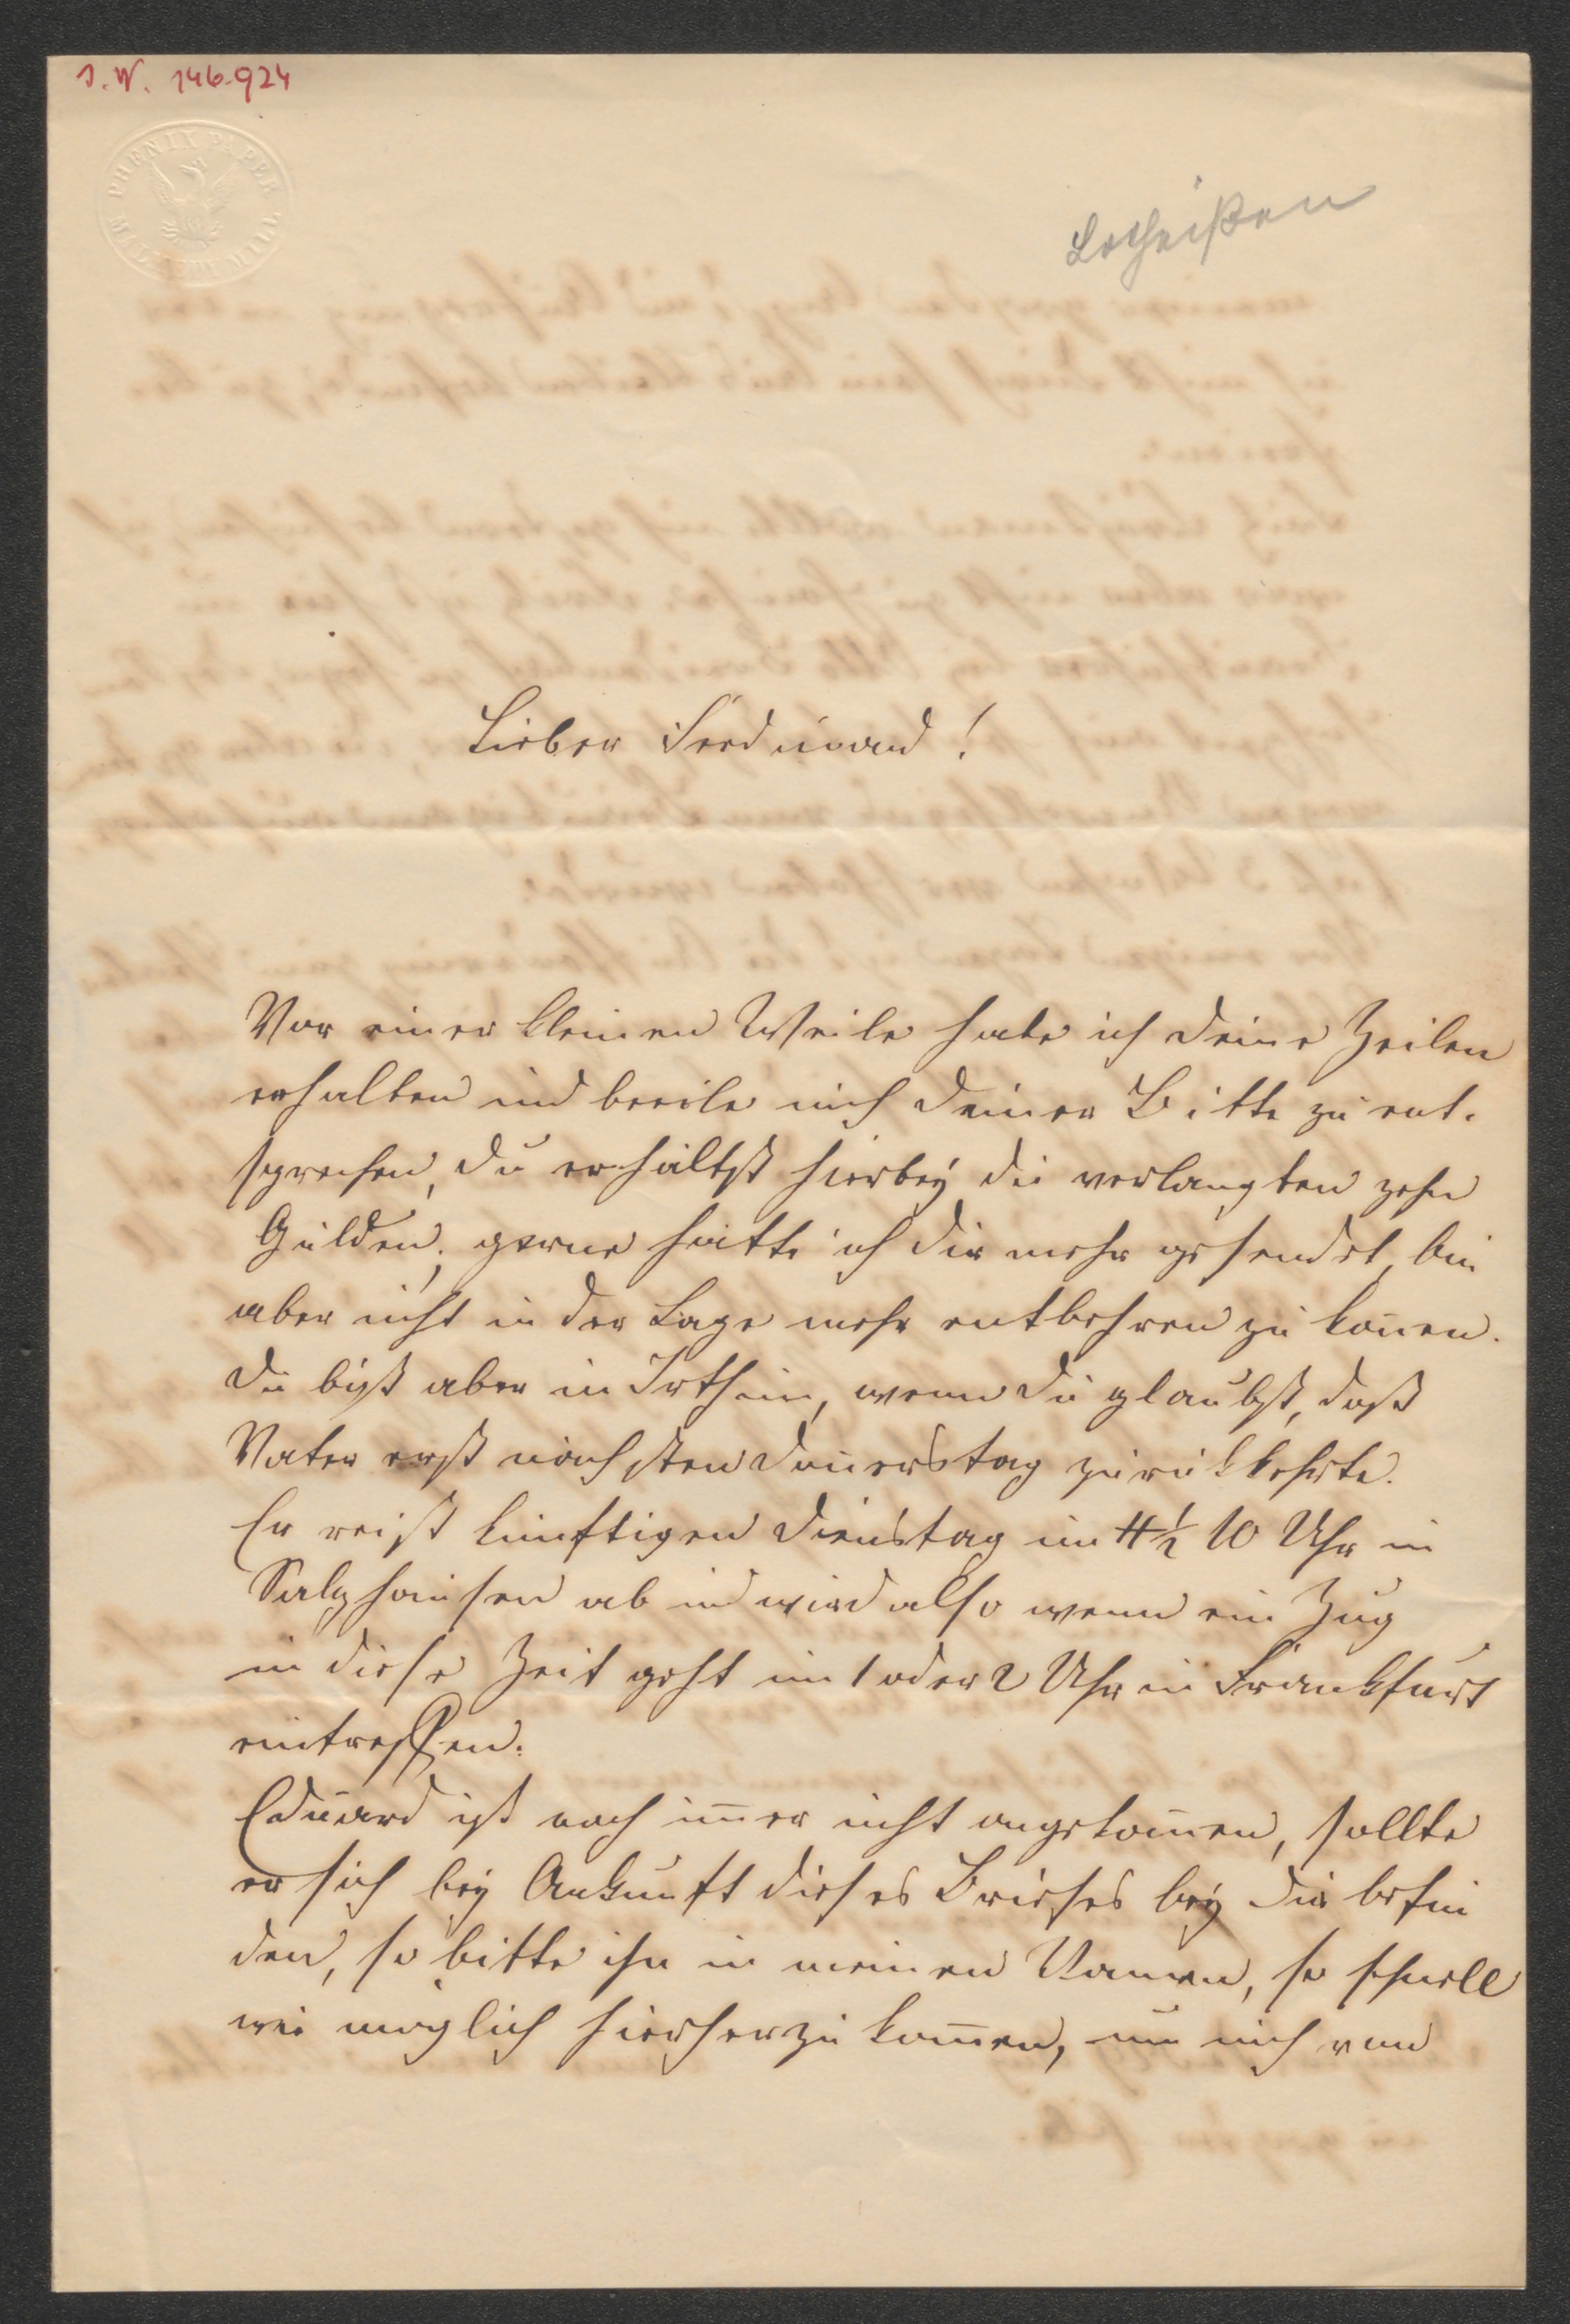 J. N. 146.924
PHENIX PAPER MILL
Lotheißen
Lieber Ferdinand!
Vor einer kleinen Weile habe ich deine Zeilen
erhalten und beeile mich deiner Bitte zu ent-
sprechen, du erhältst hierbey die verlangten zehn
Gulden; gerne hätte ich dir mehr gesendet, bin
aber nicht in der Lage mehr entbehren zu koñen.
Du bist aber in Irthum, wenn du glaubst, daß
Vater erst nächsten Doñerstag zurükkehrte.
Er reist künftigen Dienstag um ½ 10 Uhr in
Salzhausen ab und wird also wenn ein Zug
in diese Zeit geht um 1 oder 2 Uhr in Frankfurt
eintreffen.
Eduard ist noch im̄er nicht angekom̄en, sollte
er sich bey Ankunft dieses Briefes bey dir befin
den, so bitte ihn in meinen Namen, so schnell
wie möglich hierherzukom̄en, um mich von